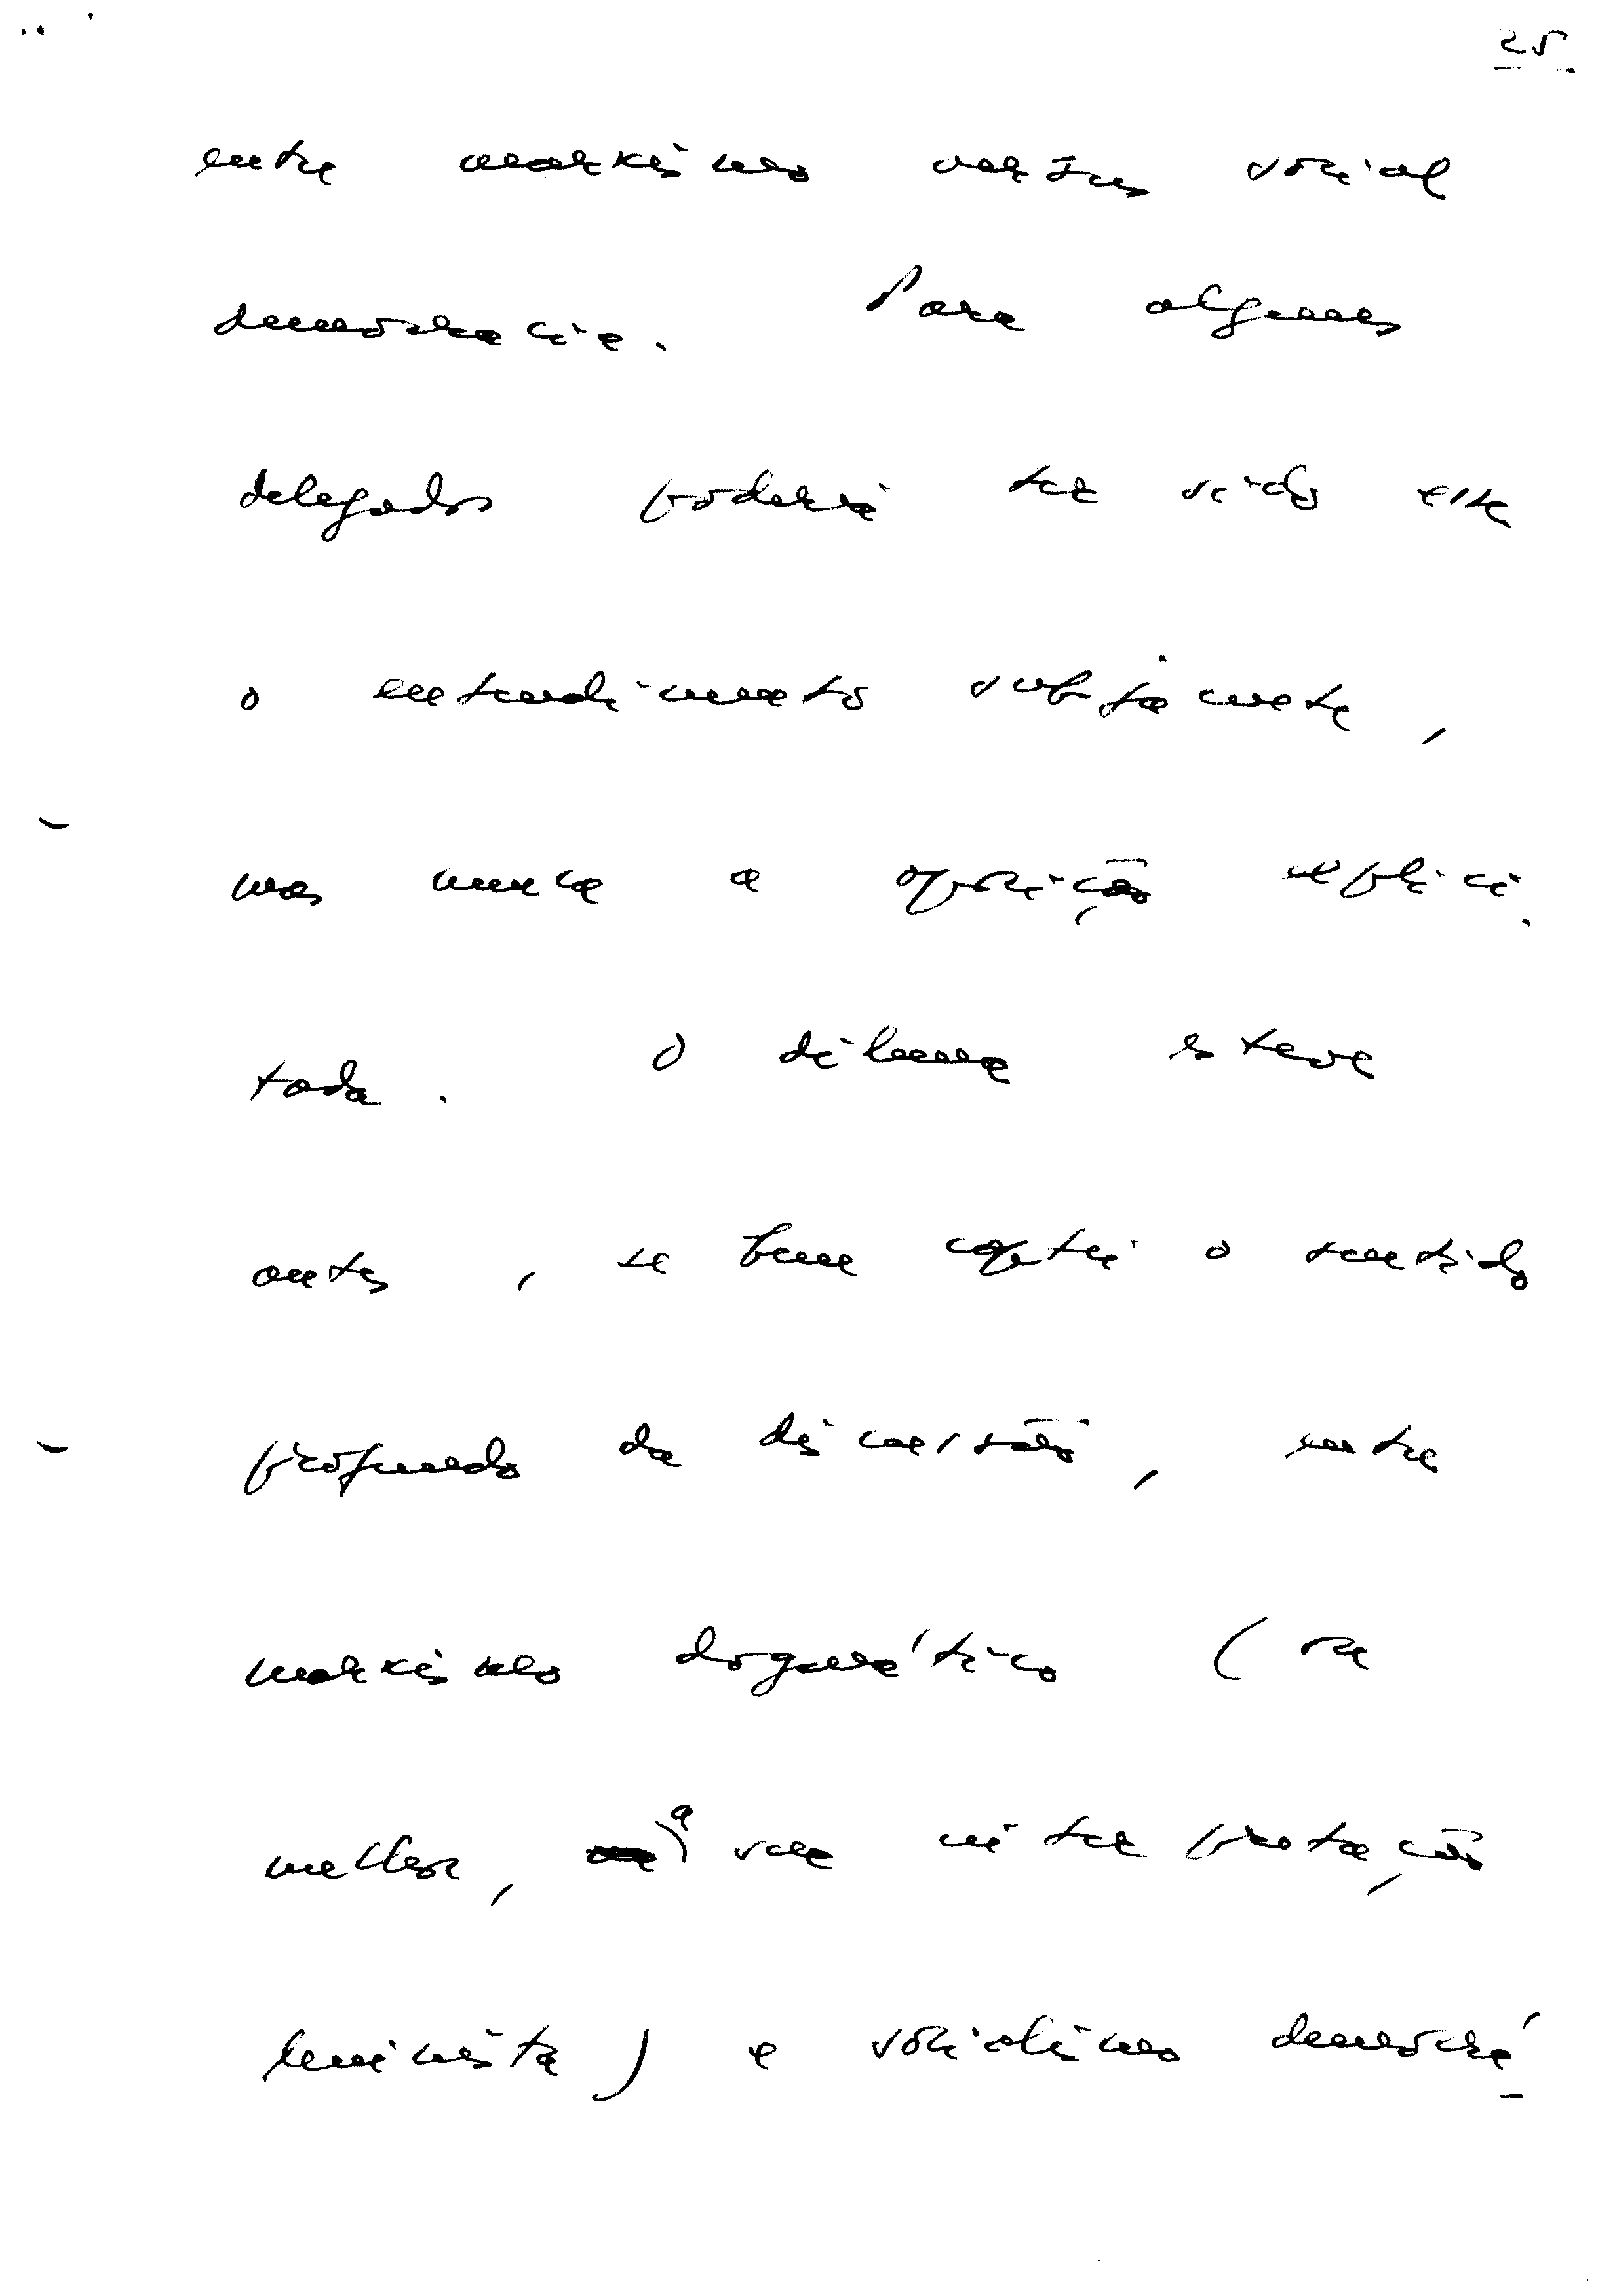 25
entre marxismo versus social
democracia. Para alguns
delegados poderá ter sido esse
o entendimento subjacente,
mas nunca a oposição explici-
tada. O dilema esteve
antes, se bem captei o sentido
profundo da discussão, entre
marxismo dogmático (ou
melhor, a sua interpretação
leninista) e socialismo democrá-